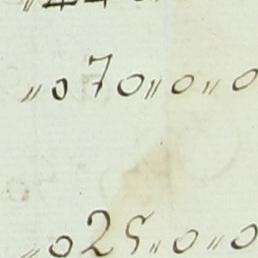 „070„0„0
„025„0„0